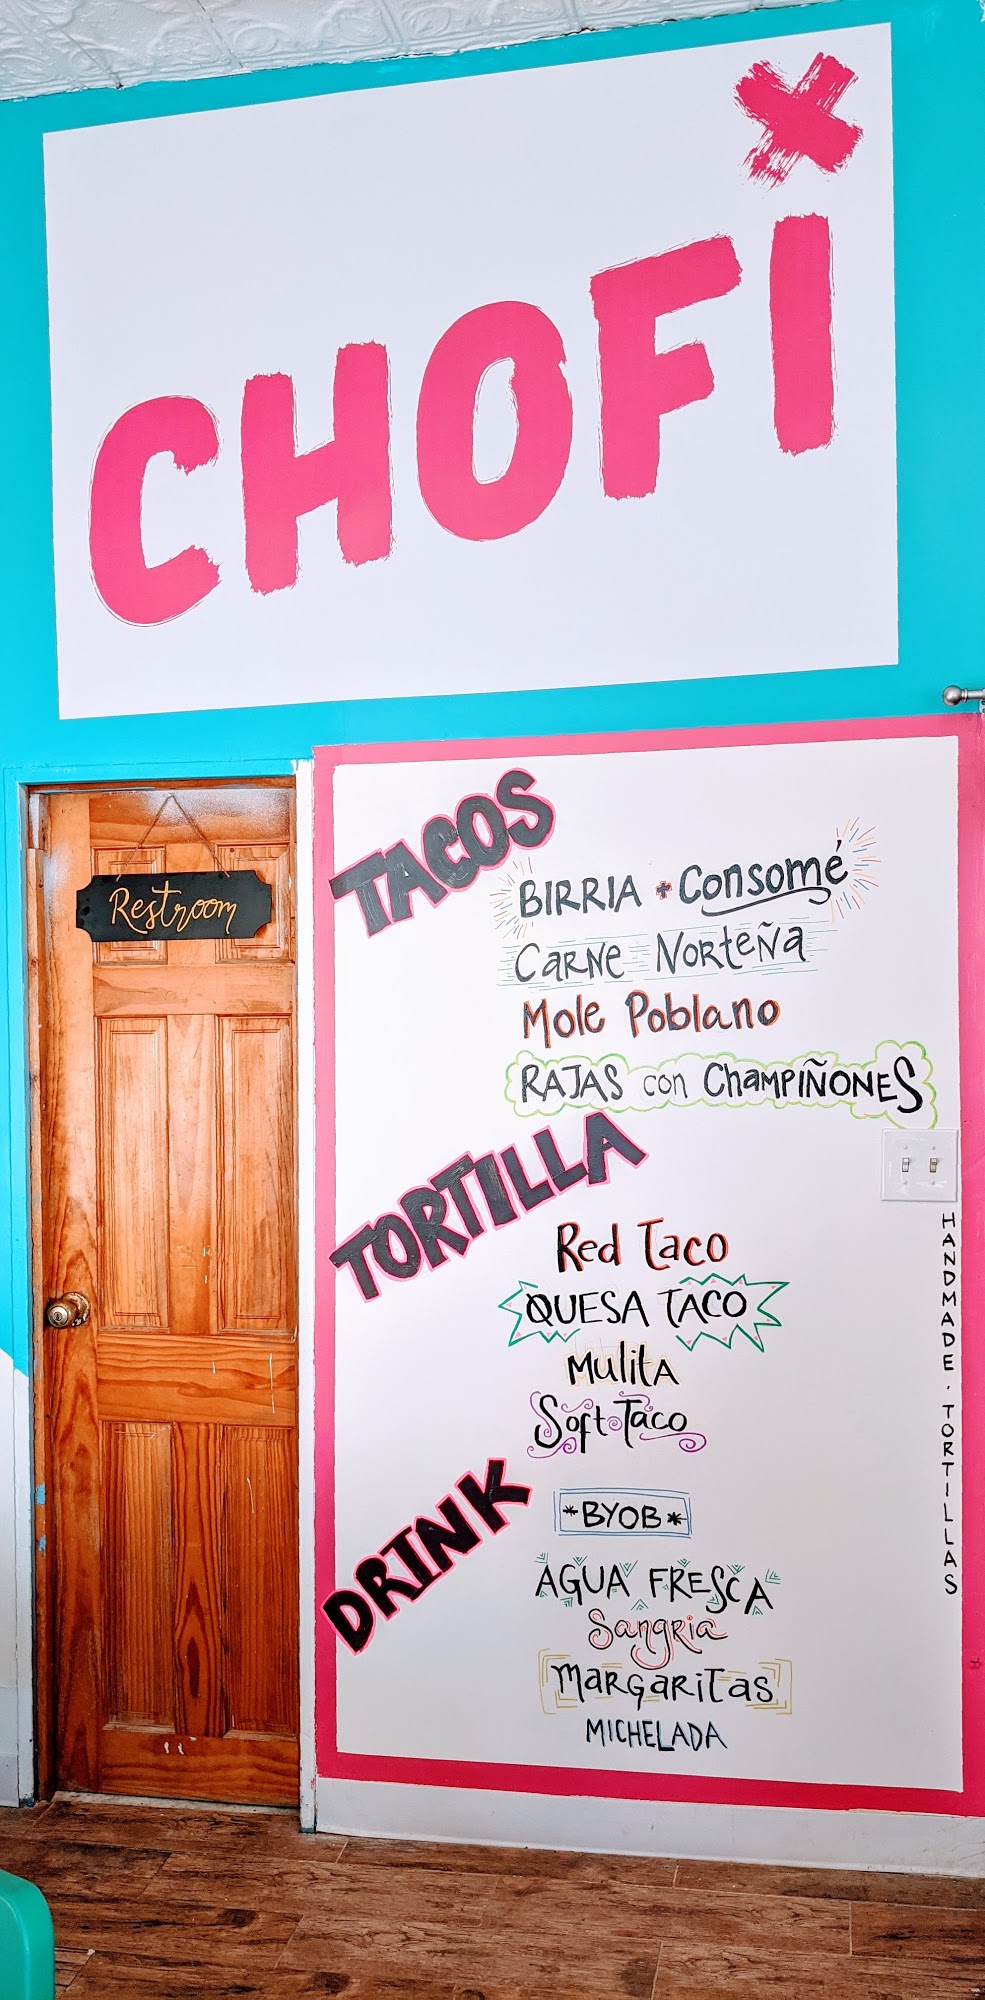 CHOFI
Restroom
TACOS
BIRRIA + Consomé
CARNE NORTEÑA
Mole Poblano
RAJAS con CHAMPIÑONES
TORTILLA
Red Taco
QUESA TACO
MulitA
Soft Taco
HANDMADE · TORTILLAS
DRINK
*BYOB*
AGUA FRESCA
Sangria
MARGARITAS
MICHELADA